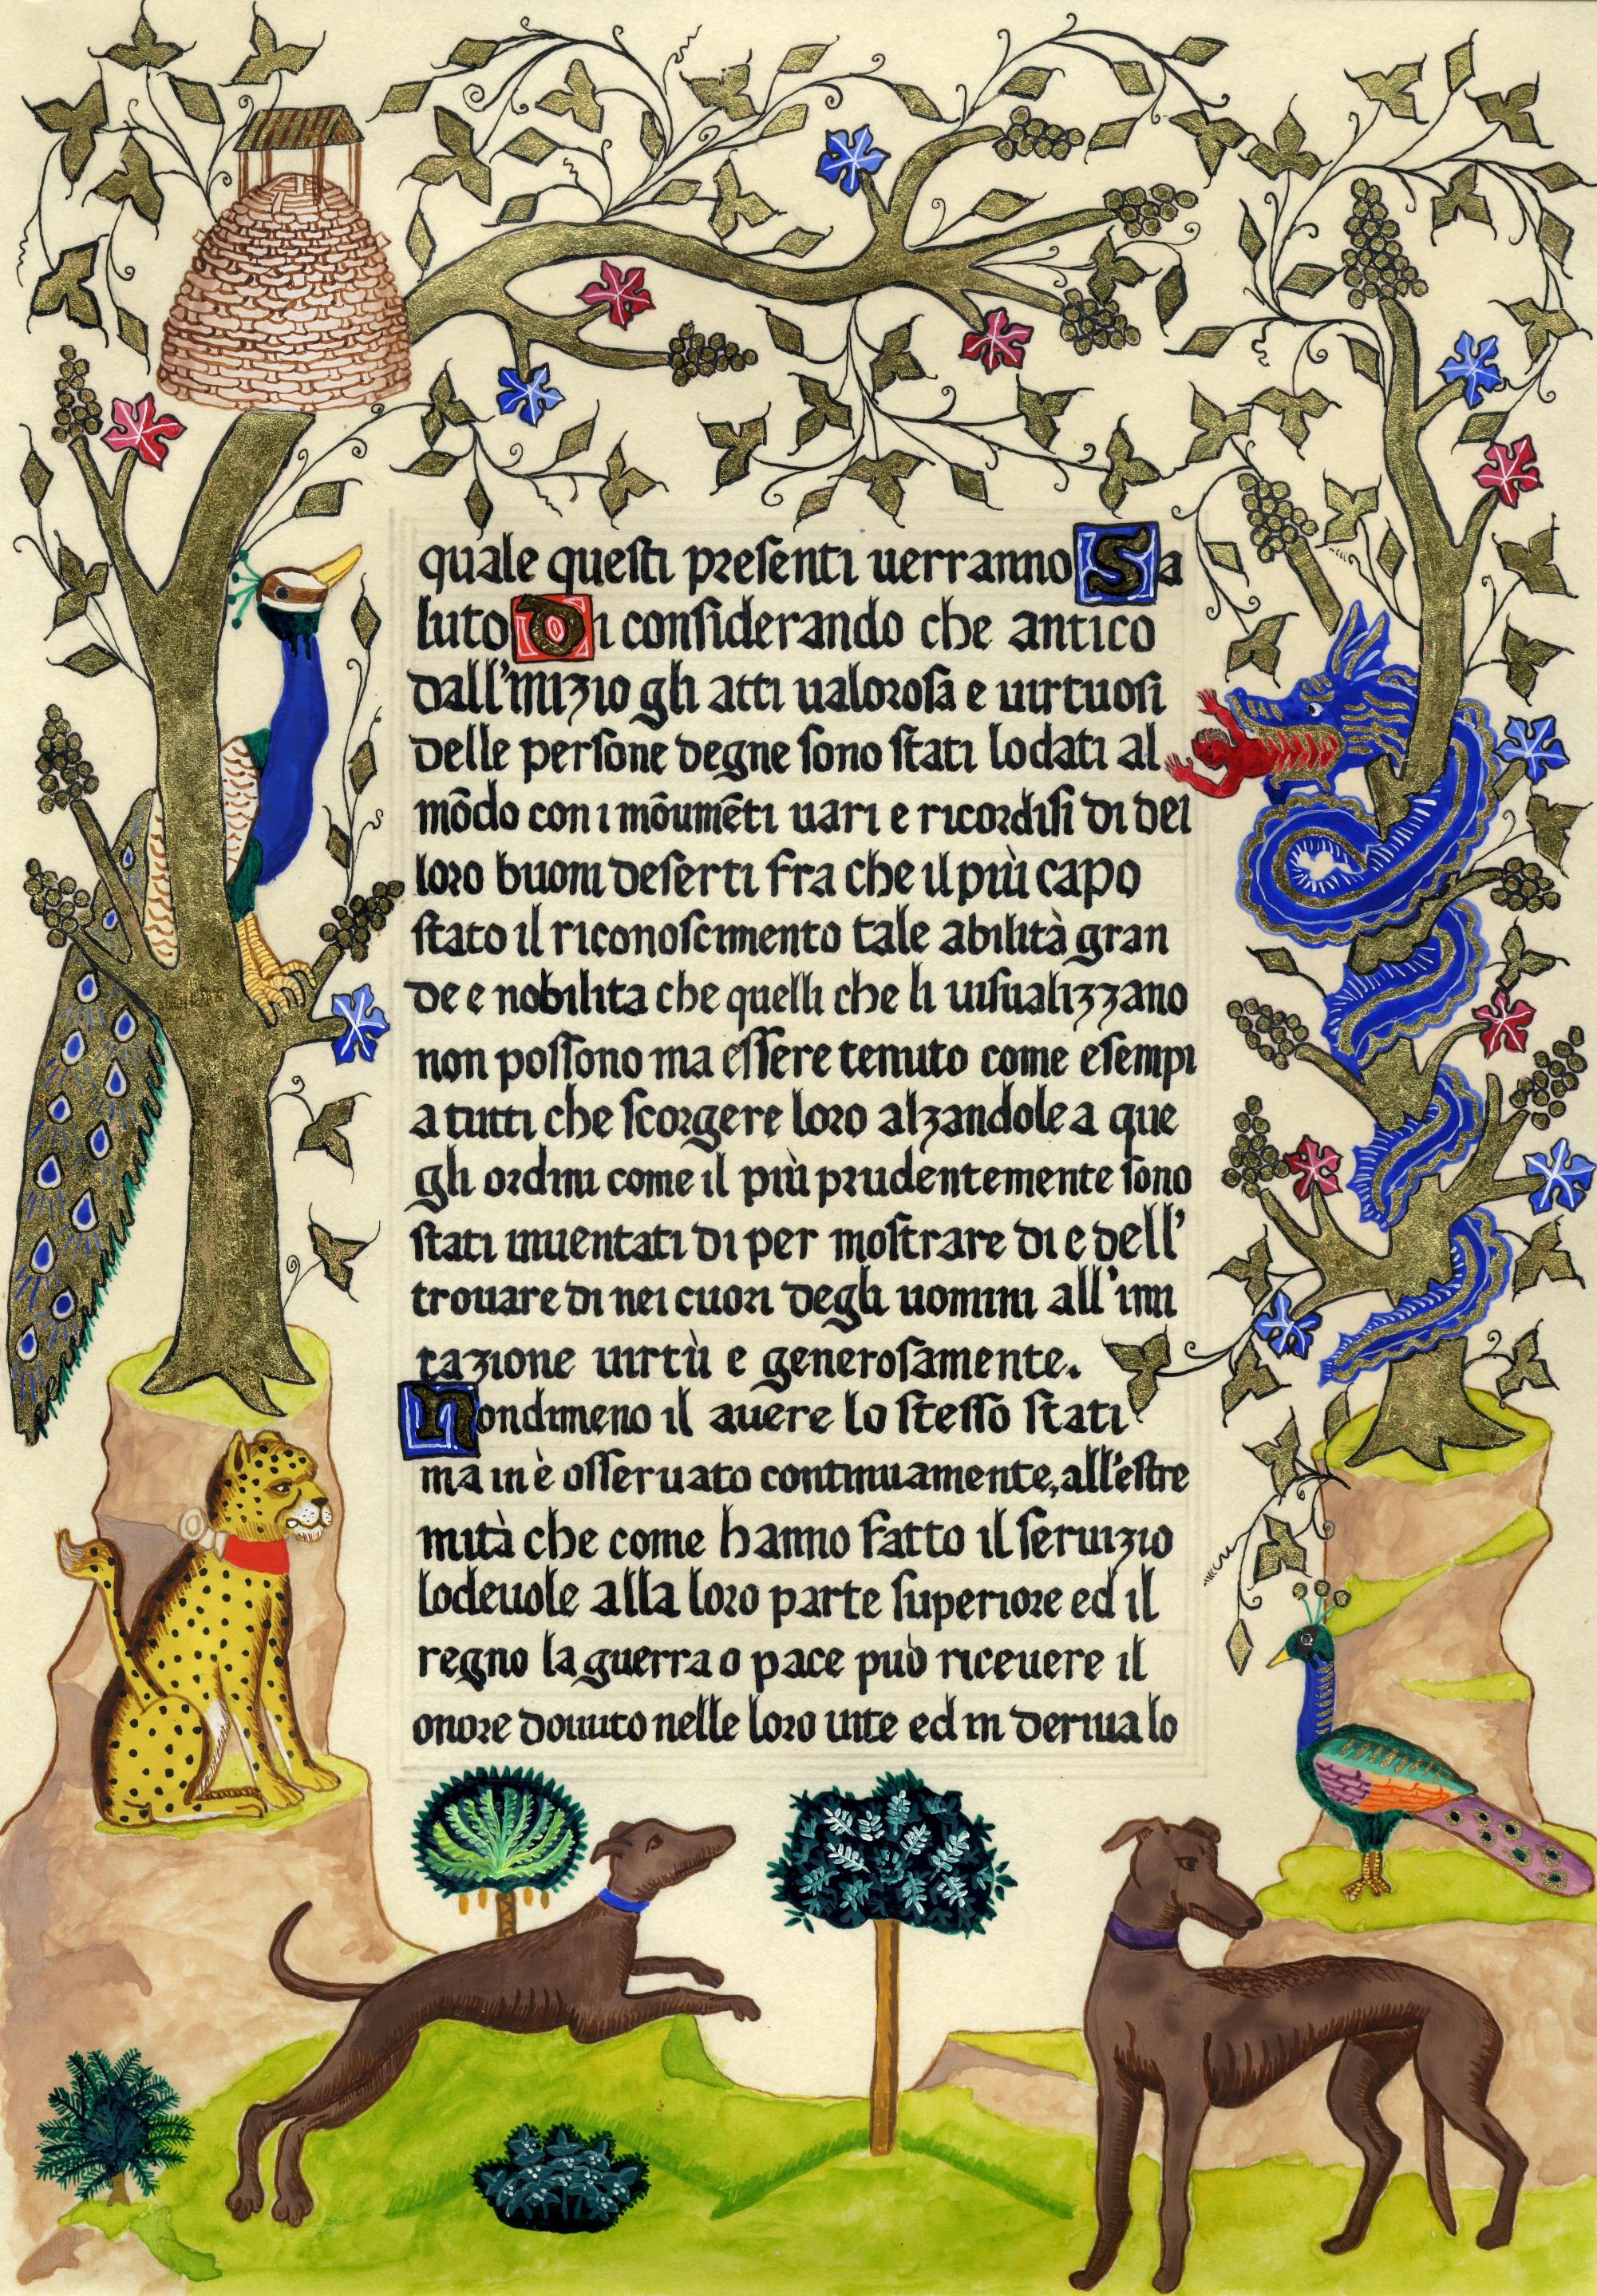 quale questi presenti uerranno Sa
luto Di considerando che antico
dall'inizio gli atti ualorosa e uirtuosi
delle persone degne sono stati lodati al
mōdo con i mōumēti uari e ricordisi di dei
loro buoni deserti fra che il più capo
stato il riconoscimento tale abilità gran
de e nobilita che quelli che li uisualizzano
non possono ma essere tenuto come esempi
a tutti che scorgere loro alzandole a que
gli ordini come il più prudentemente sono
stati inuentati di per mostrare di e dell'
trouare di nei cuori degli uomini all'imi
tazione uirtù e generosamente.
Nondimeno il auere lo stesso stati
ma in è osseruato continuamente, all'estre
mità che come hanno fatto il seruizio
lodeuole alla loro parte superiore ed il
regno la guerra o pace può riceuere il
onore douuto nelle loro uite ed in deriua lo